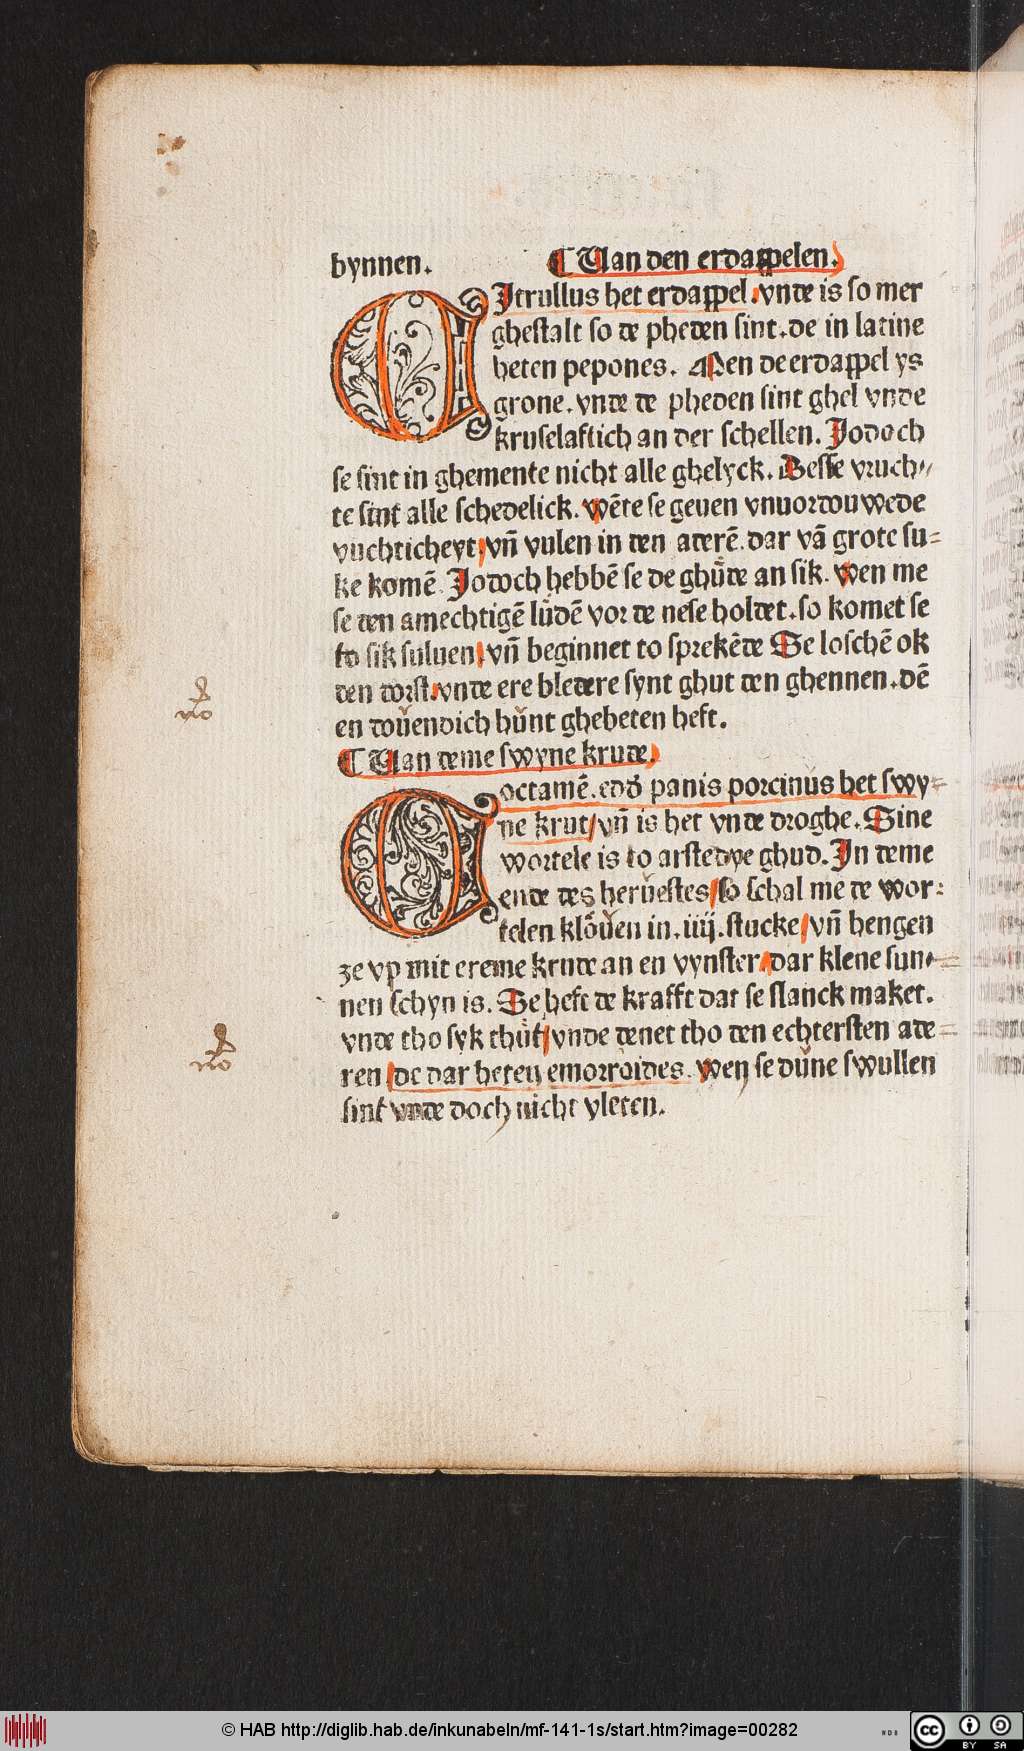 bynnen. ¶ Uan den erdappelen.
CItrullus het erdappel. vnde is so mer
ghestalt so de pheden sint. de in latine
heten pepones. Men de erdappel ys
grone. vnde de pheden sint ghel vnde
kruselaftich an der schellen. Jodoch
se sint in ghemente nicht alle ghelyck. Desse vruch⸗
te sint alle schedelick. wēte se geuen vnuordouwede
vuchticheyt/ vñ vulen in den aderē. dar vā grote su⸗
ke komē. Jodoch hebbē se de ghuͤde an sik. wen me
se den amechtigē luͤdē vor de nese holdet. so komet se
to sik suluen/ vñ beginnet to sprekēde Se loschē ok
den dorst. vnde ere bledere synt ghut den ghennen. dē
en douͤendich huͤnt ghebeten heft.
¶ Uan deme swyne krude.
COctamē. edđ panis porcinus het swy⸗
ne krut/ vñ is het vnde droghe. Sine
wortele is to arstedye ghud. In deme
ende des heruͤestes/ so schal me de wor⸗
telen kloͤuen in. iiij. stucke/ vñ hengen
ze vp mit ereme krude an en vynster/ dar klene sun⸗
nen schyn is. Se heft de krafft dat se slanck maket.
vnde tho syk thuͤt/ vnde denet tho den echtersten ade⸗
ren/ de dar heten emorroides. wen se duͤne swullen
sint vnde doch nicht vleten.
no
no
© HAB http://diglib.hab.de/inkunabeln/mf-141-1s/start.htm?image=00282
WDB
cc
BY SA